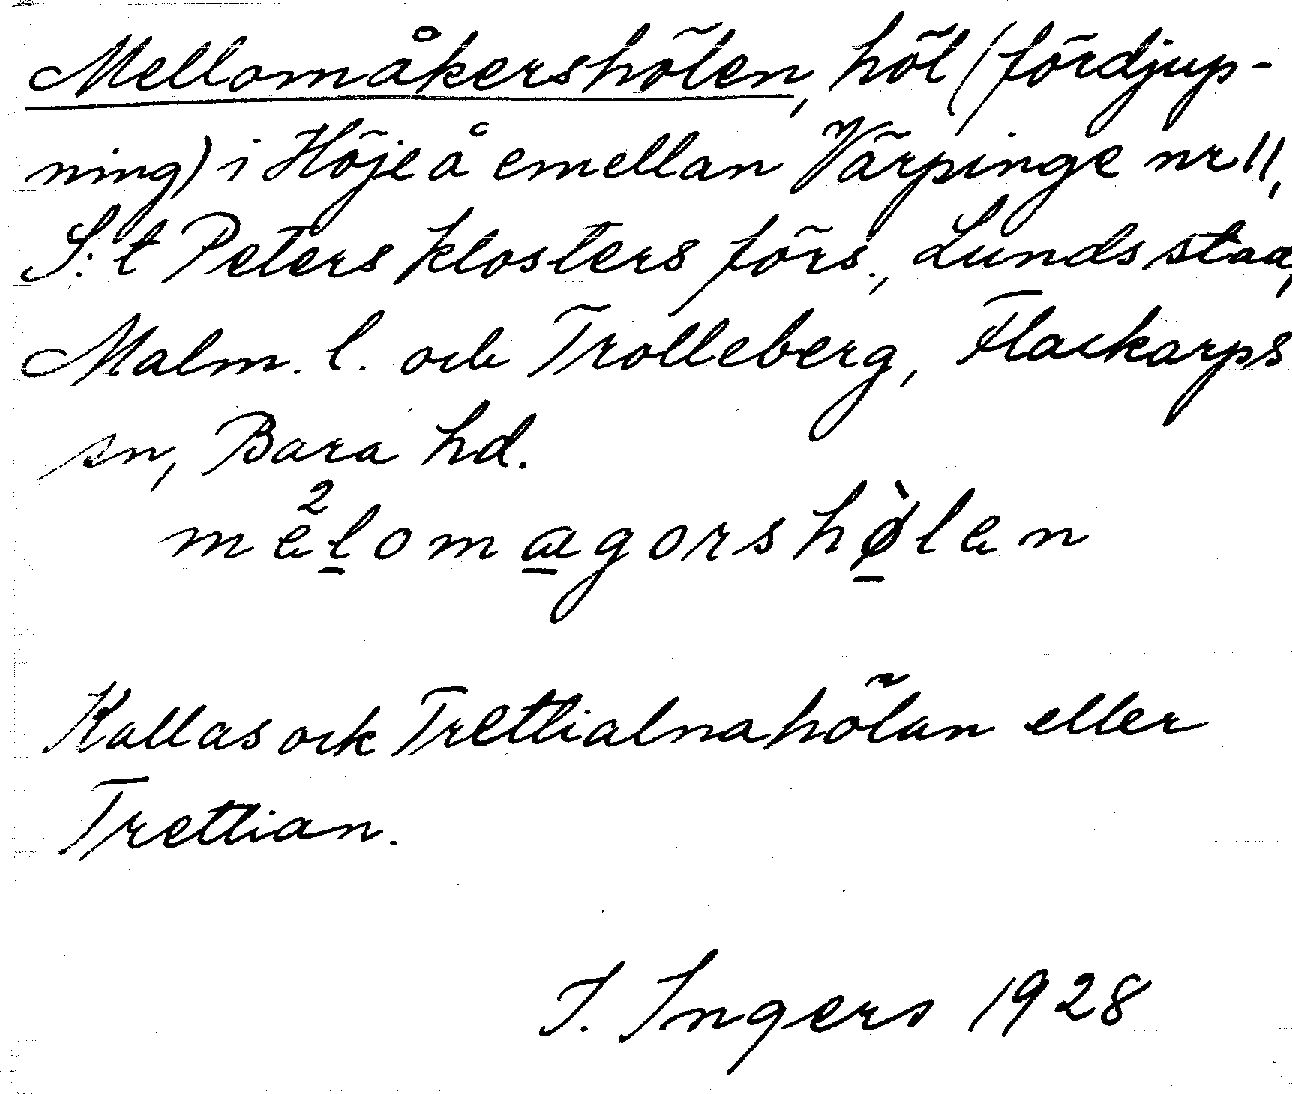 Mellomåkershölen, höl (fördjup-
ning) i Höje å emellan Värpinge nr 11,
S:t Peters klosters förs., Lunds stad,
Malm. l. och Trolleberg, Flackarps
sn, Bara hd.
me²lomagorshø̀len
Kallas ock Trettialnahölan eller
Trettian.
I. Ingers 1928